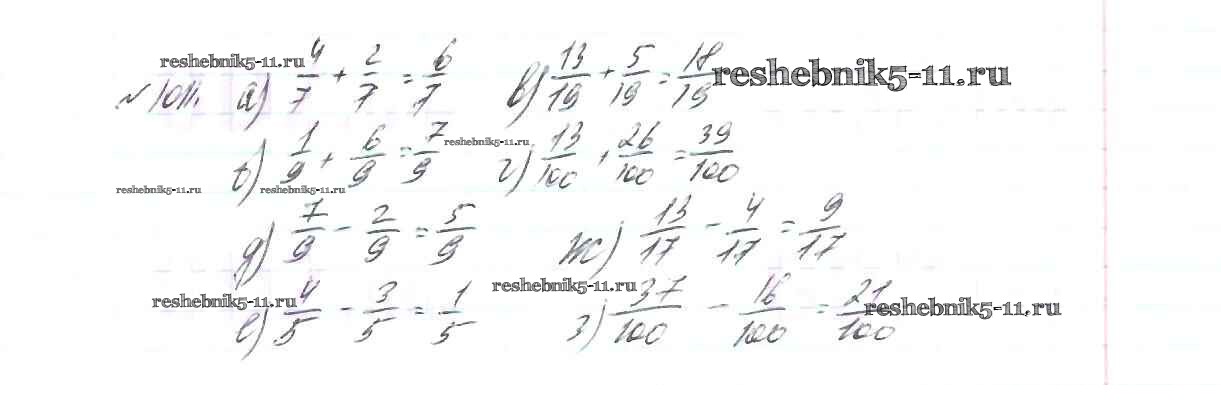 reshebnik5-11.ru
№ 1011. а) 4/7 + 2/7 = 6/7 в) 13/19 + 5/19 = 18/19 reshebnik5-11.ru
б) 1/9 + 6/9 = 7/9 reshebnik5-11.ru г) 13/100 + 26/100 = 39/100
reshebnik5-11.ru reshebnik5-11.ru
д) 7/9 - 2/9 = 5/9 ж) 13/17 - 4/17 = 9/17
reshebnik5-11.ru reshebnik5-11.ru
е) 4/5 - 3/5 = 1/5 з) 37/100 - 16/100 = 21/100 reshebnik5-11.ru